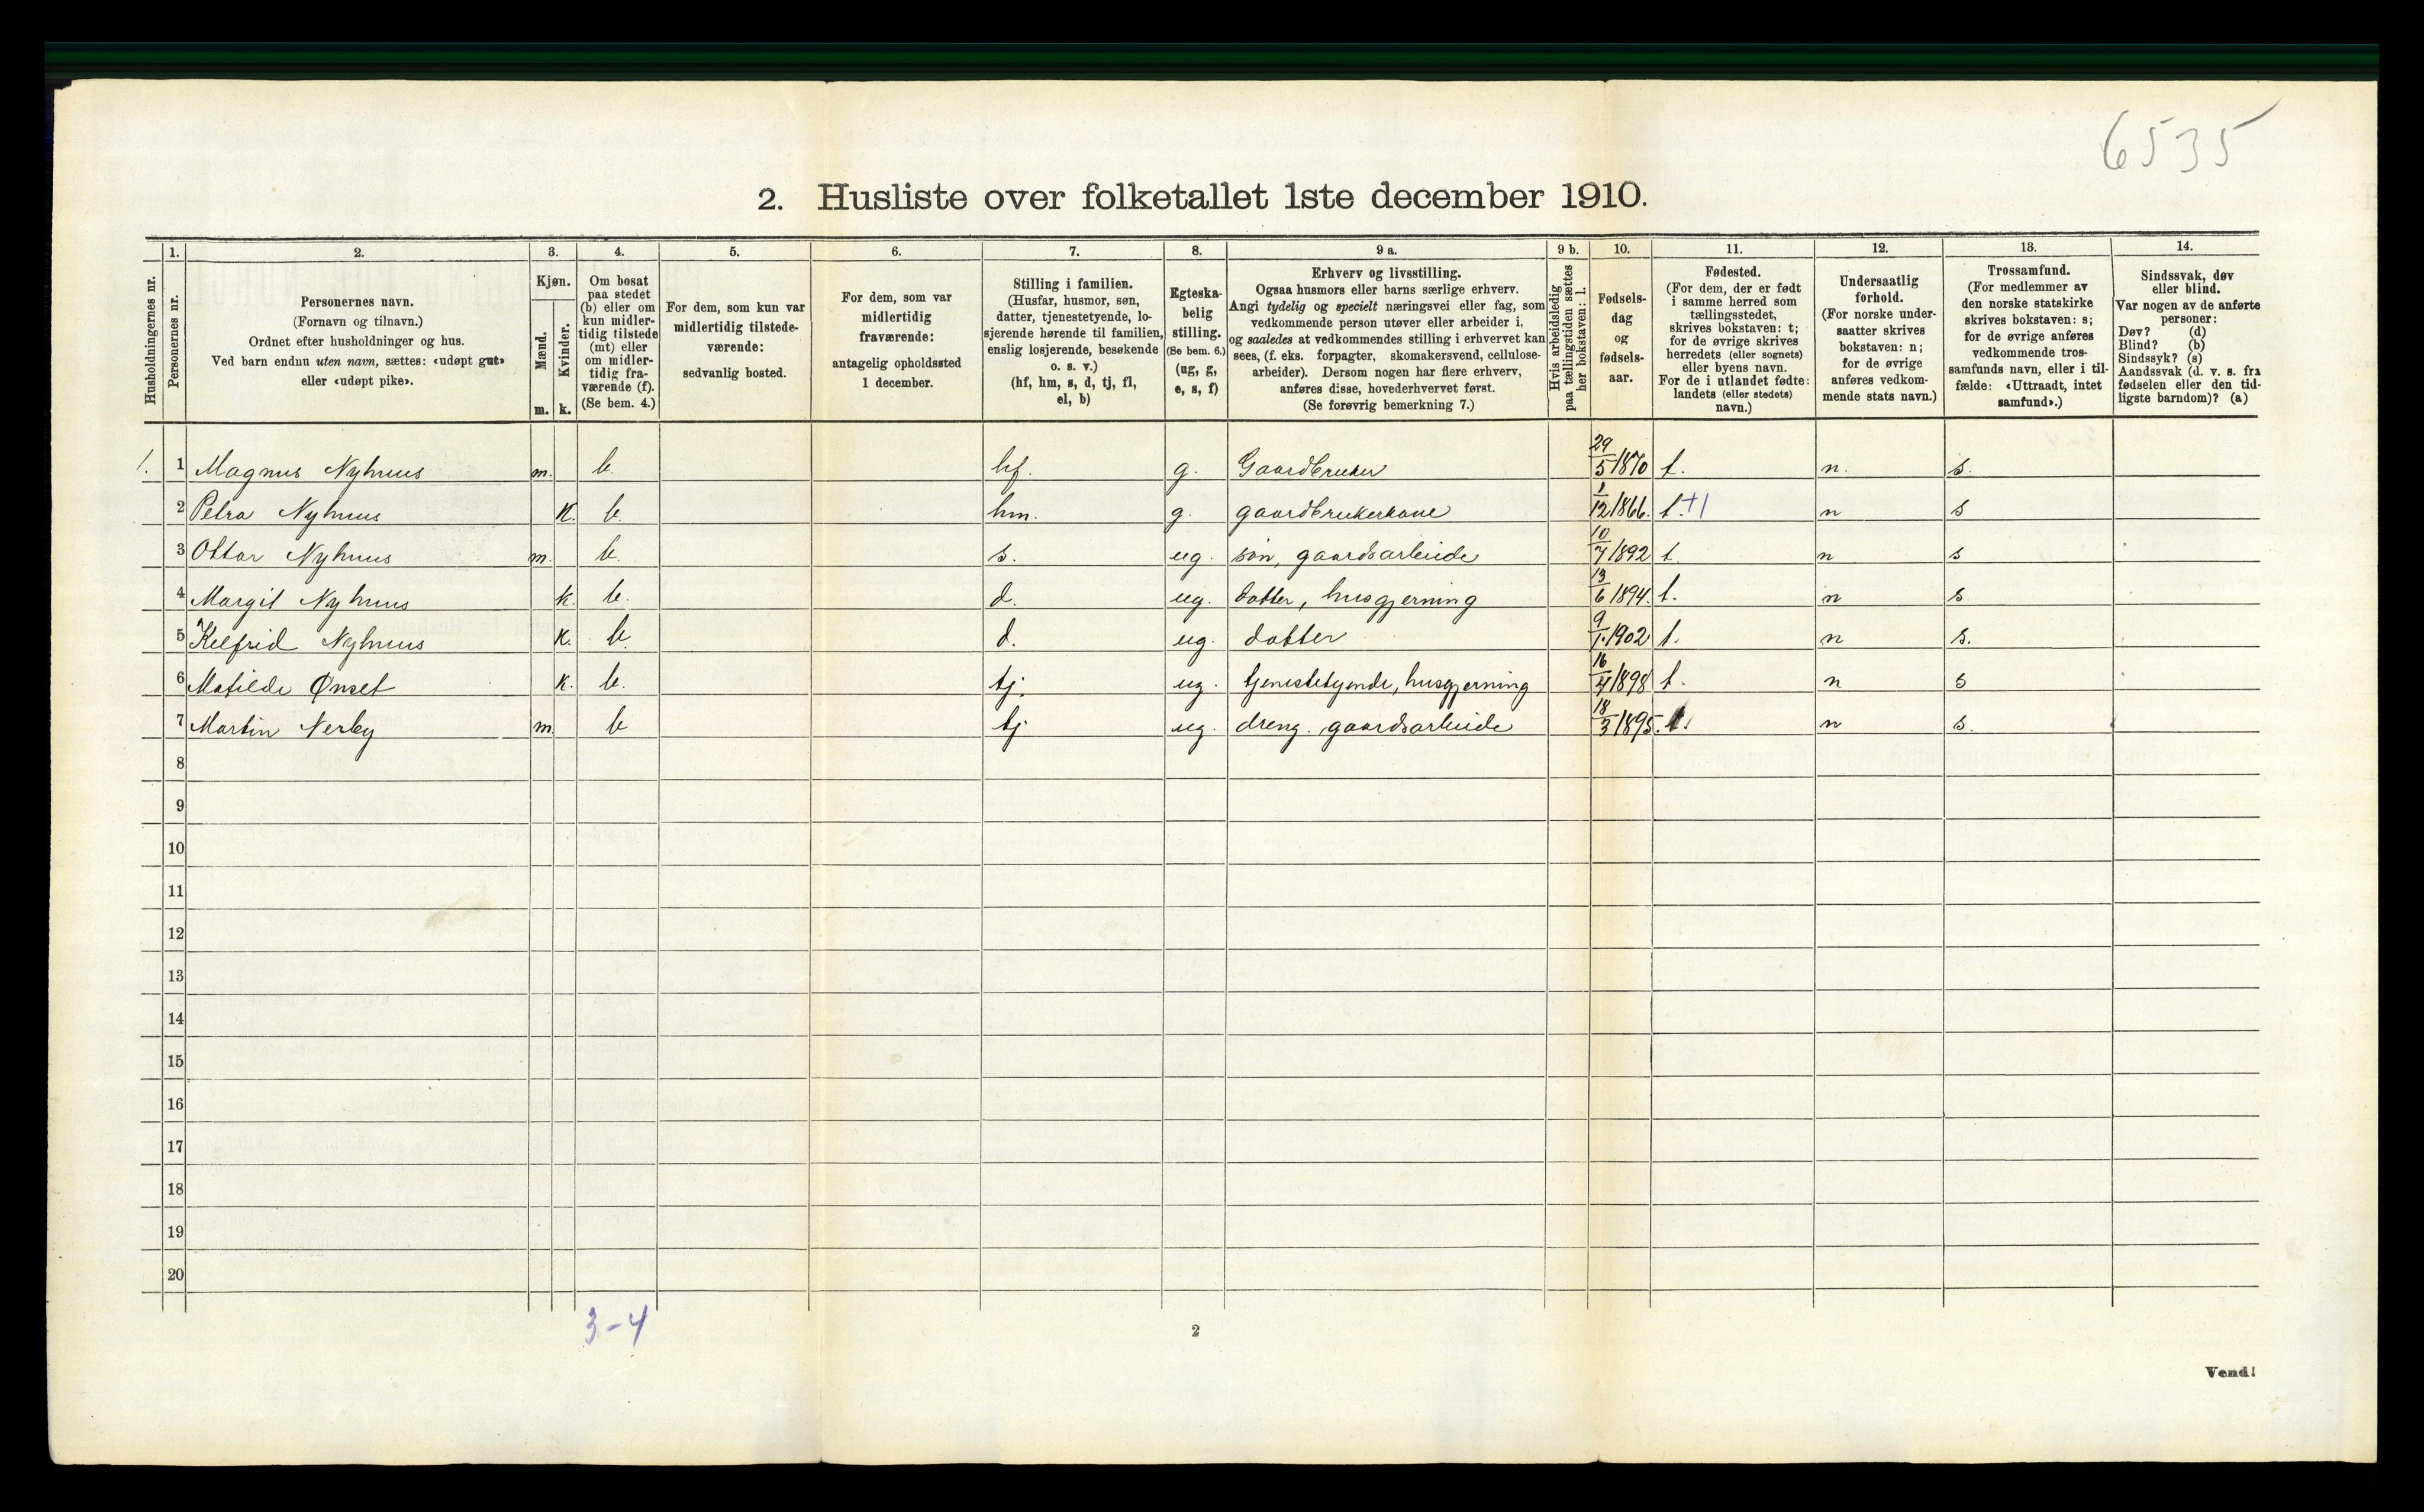 6535
2. Husliste over folketallet 1ste december 1910.
Husholdningernes nr.
1. Personernes nr.
2. Personernes navn. (Fornavn og tilnavn.) Ordnet efter husholdninger og hus. Ved barn endnu uten navn, sættes: «udøpt gut» eller «udøpt pike».
3. Kjøn. Mænd. m. Kvinder. k.
4. Om bosat paa stedet (b) eller om kun midlertidig tilstede (mt) eller om midlertidig fraværende (f). (Se bem. 4.)
5. For dem, som kun var midlertidig tilstedeværende: sedvanlig bosted.
6. For dem, som var midlertidig fraværende: antagelig opholdssted 1 december.
7. Stilling i familien. (Husfar, husmor, søn, datter, tjenestetyende, losjerende hørende til familien, enslig losjerende, besøkende o. s. v.) (hf, hm, s, d, tj, fl, el, b)
8. Egteskabelig stilling. (Se bem. 6.) (ug, g, e, s, f)
9 a. Erhverv og livsstilling. Ogsaa husmors eller barns særlige erhverv. Angi tydelig og specielt næringsvei eller fag, som vedkommende person utøver eller arbeider i, og saaledes at vedkommendes stilling i erhvervet kan sees, (f. eks. forpagter, skomakersvend, cellulosearbeider). Dersom nogen har flere erhverv, anføres disse, hovederhvervet først. (Se forøvrig bemerkning 7.)
9 b. Hvis arbeidsledig paa tællingstiden sættes her bokstaven: l.
10. Fødselsdag og fødselsaar.
11. Fødested. (For dem, der er født i samme herred som tællingsstedet, skrives bokstaven: t; for de øvrige skrives herredets (eller sognets) eller byens navn. For de i utlandet fødte: landets (eller stedets) navn.)
12. Undersaatlig forhold. (For norske undersaatter skrives bokstaven: n; for de øvrige anføres vedkommende stats navn.)
13. Trossamfund. (For medlemmer av den norske statskirke skrives bokstaven: s; for de øvrige anføres vedkommende trossamfunds navn, eller i tilfælde: «Uttraadt, intet samfund».)
14. Sindssvak, døv eller blind. Var nogen av de anførte personer: Døv? (d) Blind? (b) Sindssyk? (s) Aandssvak (d. v. s. fra fødselen eller den tidligste barndom)? (a)
1. 1 Magnus Nyhuus m. b. hf. g. Gaardbruker 29/5 1870 t. n. s.
2 Petra Nyhuus K. b. hm. g. gaardbrukerkone 1/12 1866. t. +1 n s
3 Ottar Nyhuus m. b. s. ug. søn, gaardsarbeide 10/7 1892 t n s
4 Margit Nyhuus k. b. d. ug. datter, husgjerning 13/6 1894. t. n s
5 Nyhuus k. b. d. ug. datter 9/1. 1902 t. n s.
6 Matilde Ønset k. b. tj. ug. tjenestetyende, husgjerning 16/4 1898 t. n s
7 Martin Nerby m. b tj ug. dreng. gaardsarbeide 18/3 1895. t. n s.
8
9
10
11
12
13
14
15
16
17
18
19
20
3-4
2
Vend!